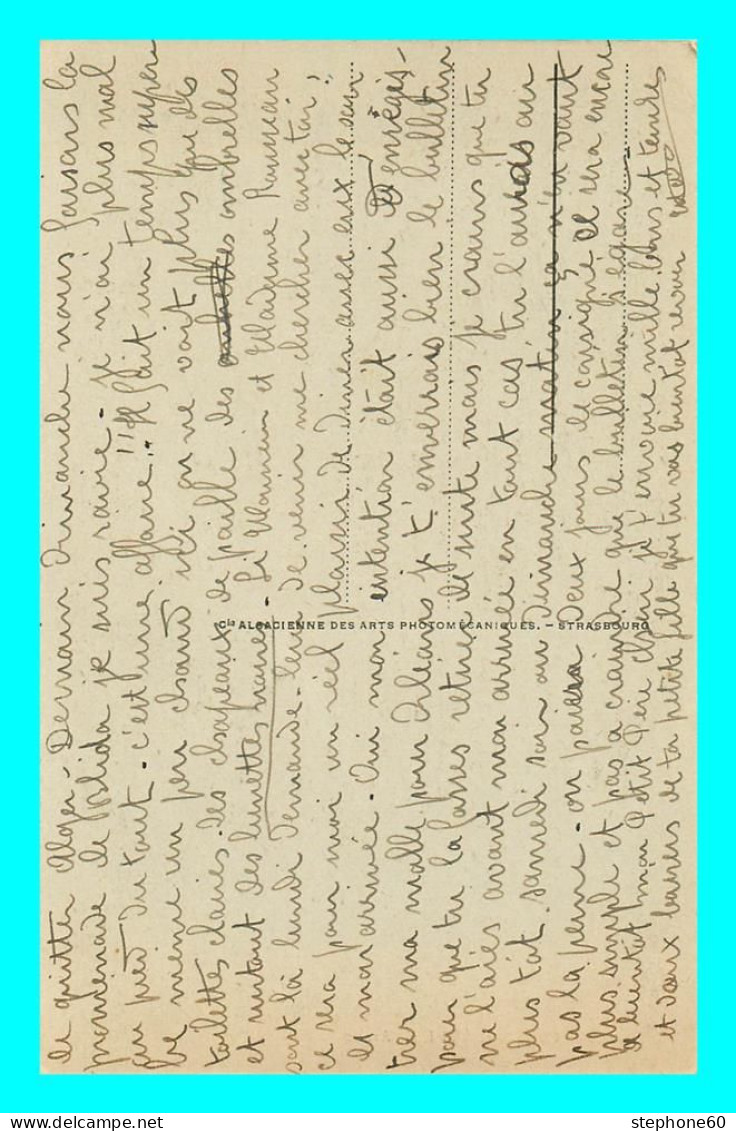 de quitter Alger. Demain Dimanche nous faisons la
promenade de Blida je suis ravie. je n'ai plus mal
au pied du tout. c'est une affaire!! Il fait un temps super
be meme un peu chaud ici on ne voit plus que des
toilettes claires. des chapeaux de paille des ombrelles
et surtout des lunettes noires. Si Monsieur et Madame Rousseau
sont là lundi demande leur de venir me chercher avec toi;
ce sera pour moi un réel plaisir de diner avec eux le soir
de mon arrivée. Oui mon intention était aussi d' enregis-
trer ma malle pour Orléans je t' enverrais bien le bulletin
pour que tu la fasses retirer de suite mais je crains que tu
ne l'aies avant mon arrivée en tout cas, tu l'aurais au
plus tôt samedi soir ou Dimanche matin ça n'en vaut
pas la peine. on paiera deux jours de consigne ce sera encore
plus simple et pas a craindre que le bulletin s'égare.
A bientôt mon Petit Père chéri je t' envoie mille bons et tendres
et doux baisers de ta petite fille que tu vas bientot revoir
Cie ALSACIENNE DES ARTS PHOTOMÉCANIQUES. – STRASBOURG
stephone60